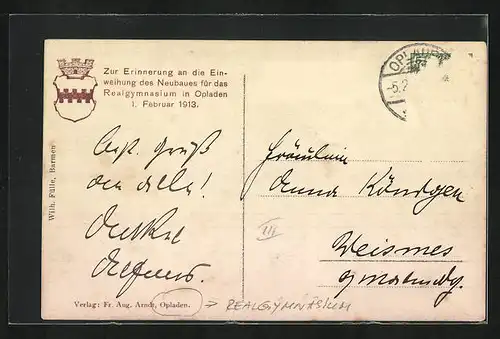 Zur Erinnerung an die Ein-
weihung des Neubaues für das
Realgymnasium in Opladen
1. Februar 1913.
OPLADEN
-5.2
Wilh. Fülle, Barmen
Gruß
an alle!
Onkel
Fräulein
Anna Köntgen
III
Weismes
Verlag: Fr. Aug. Arndt, Opladen.
→ REALGYMNASIUM